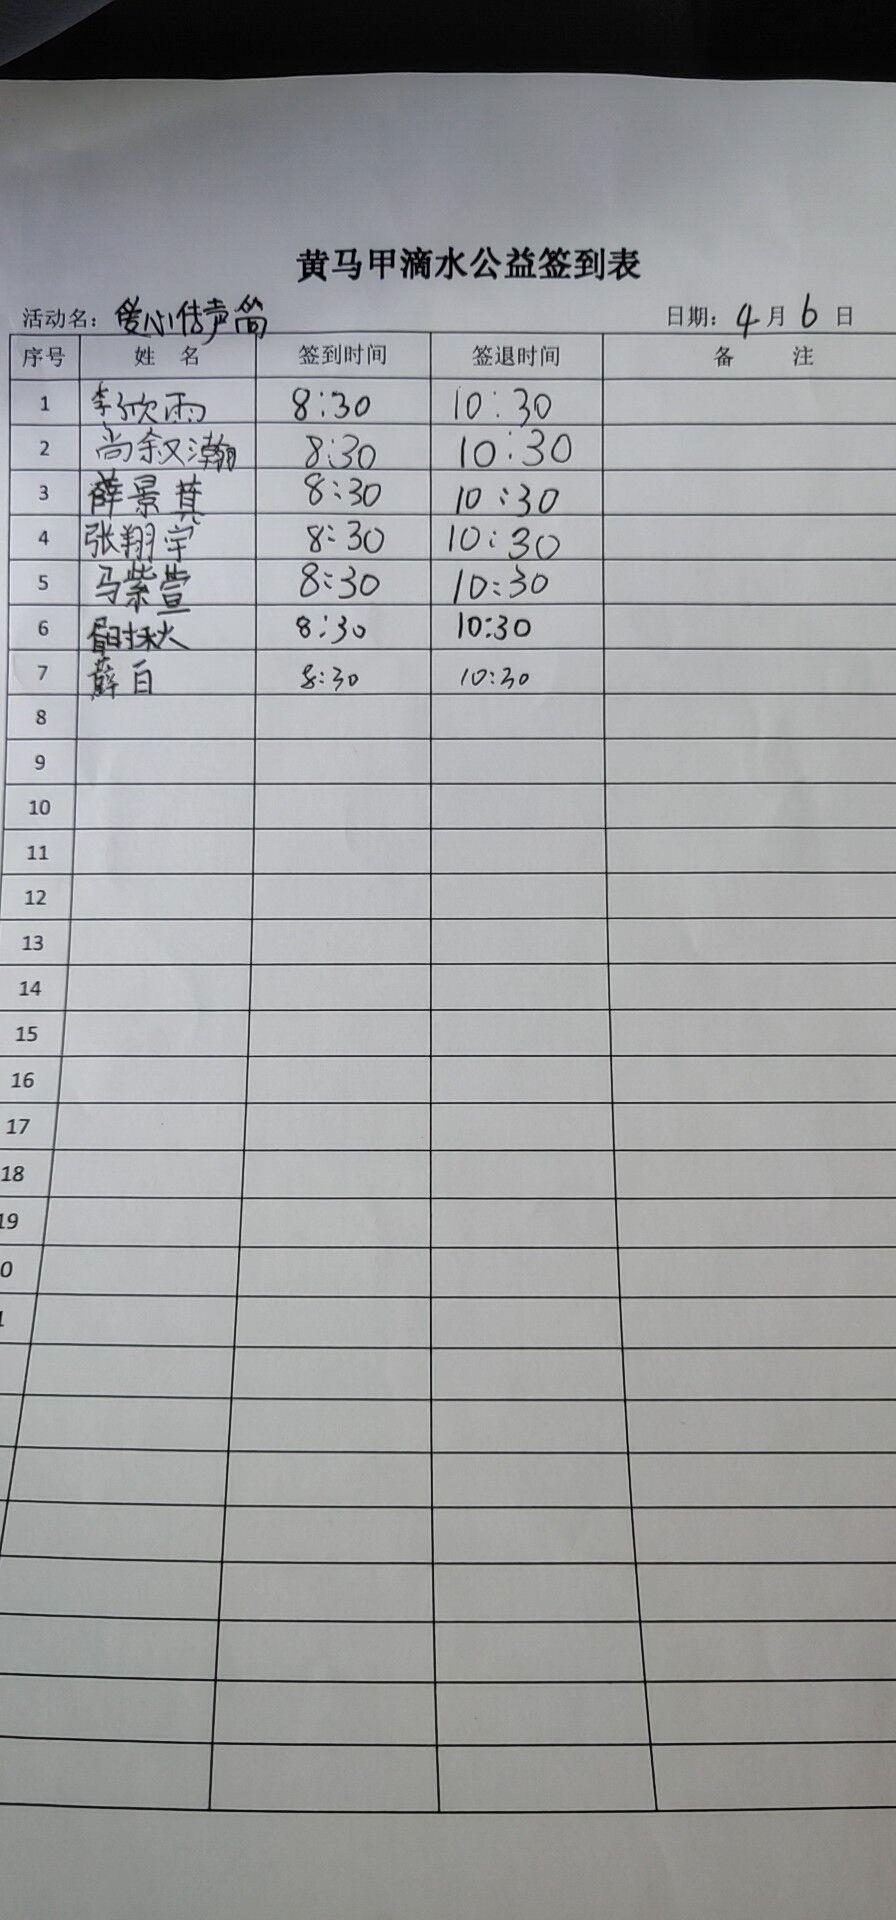 黄马甲滴水公益签到表
活动名：爱心传声筒 日期：4月6日
序号 姓名 签到时间 签退时间 备注
1 李欣雨 8:30 10:30
2 尚叙瀚 8:30 10:30
3 薛景萁 8:30 10:30
4 张翔宇 8:30 10:30
5 马紫萱 8:30 10:30
6 8:30 10:30
7 薛白 8:30 10:30
8
9
10
11
12
13
14
15
16
17
18
19
0
1